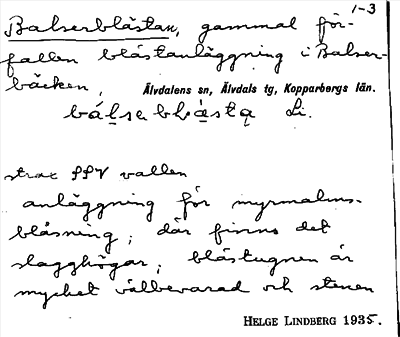 1-3
Balserblästan, gammal för-
fallen blästanläggning i Balser-
bäcken, Älvdalens sn, Älvdals tg, Kopparbergs län.
Li.
strax SSV vallen
anläggning för myrmalms-
blåsning; där finns det
slagghögar; blästugnen är
mycket välbevarad och stenen
HELGE LINDBERG 1935.